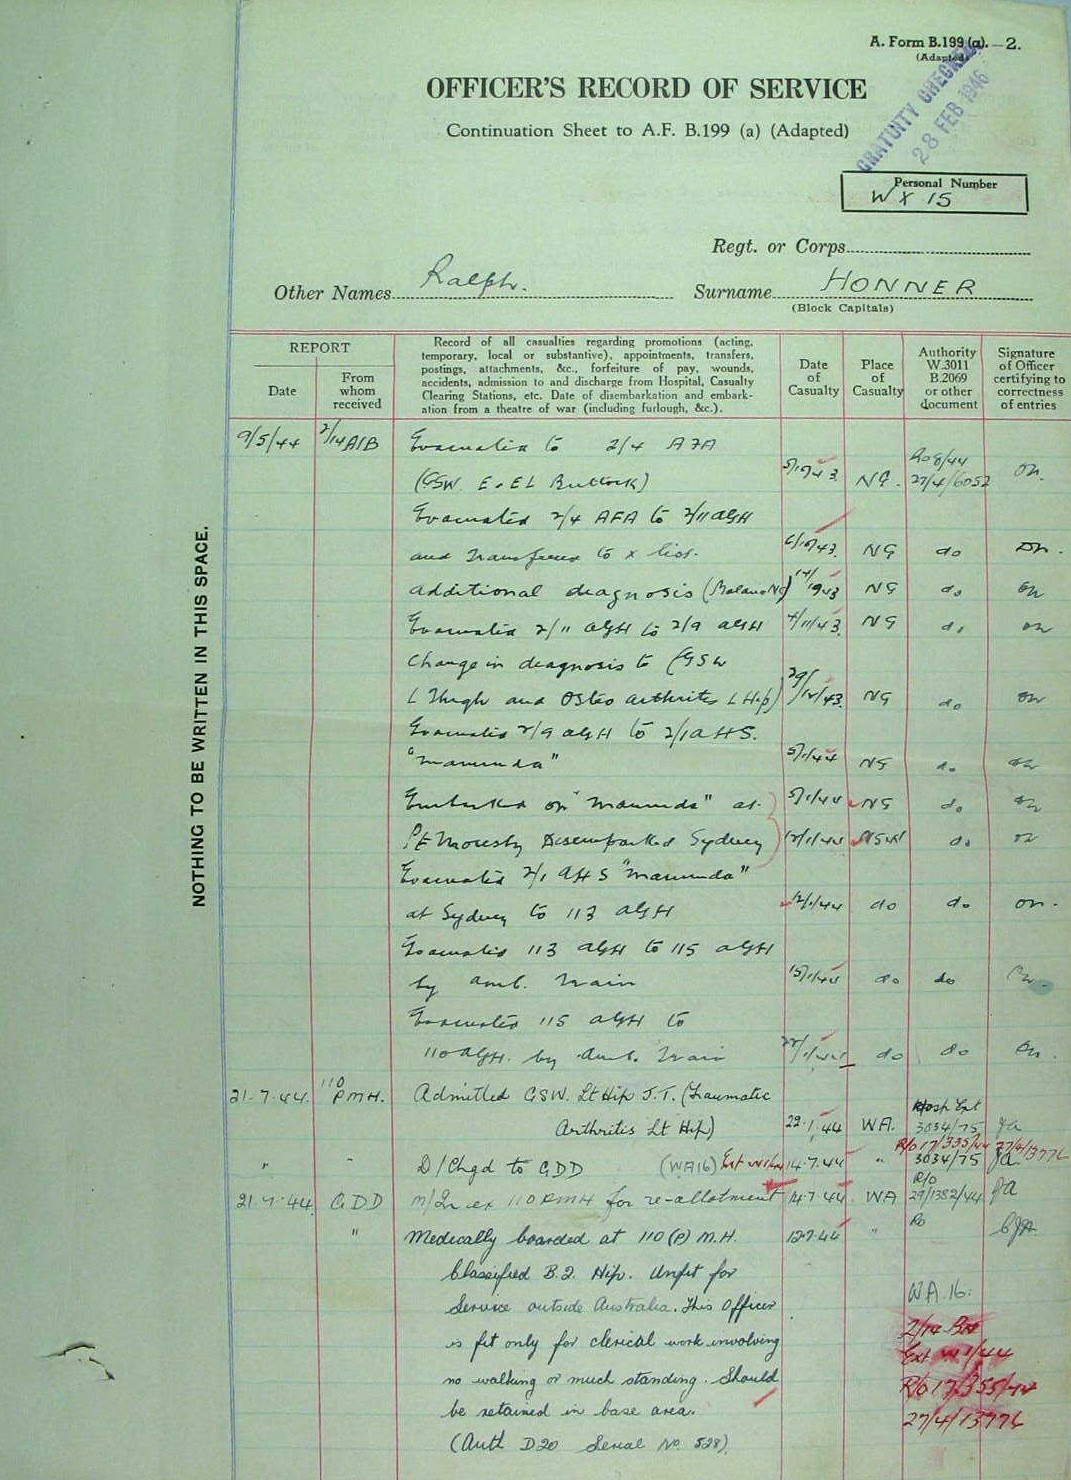 A. Form B.199 (a).—2.
(Adapted)
GRATUITY CHECKED
28 FEB 1946
OFFICER'S RECORD OF SERVICE
Continuation Sheet to A.F. B.199 (a) (Adapted)
Personal Number
WX 15
Regt. or Corps
Other Names Ralph. Surname HONNER
(Block Capitals)
NOTHING TO BE WRITTEN IN THIS SPACE.
REPORT
Date
From whom received
Record of all casualties regarding promotions (acting,
temporary, local or substantive), appointments, transfers,
postings, attachments, &c., forfeiture of pay, wounds,
accidents, admission to and discharge from Hospital, Casualty
Clearing Stations, etc. Date of disembarkation and embark-
ation from a theatre of war (including furlough, &c.).
Date of Casualty
Place of Casualty
Authority W.3011 B.2069 or other document
Signature of Officer certifying to correctness of entries
9/5/44 2/14 AIB Evacuated to 2/4 AFA
(GSW. Buttock) NG. 27/4/6052
Evacuated 2/4 AFA to 2/11 AGH
and transferred to x list. 6/10/43 NG do
additional diagnosis 1943 NG do
Evacuated 2/11 AGH to 2/9 AGH 4/11/43 NG do
Change in diagnosis to (GSW
L Thigh and Osteo arthritis L Hip) 29/12/43 NG do
Evacuated 2/9 AGH to 2/1 AHS.
"Manunda" 5/1/44 NG do
Embarked on "Manunda" at 5/1/44 NG do
Pt Moresby Disembarked Sydney 12/1/44 NSW do
Evacuated 2/1 AHS "Manunda"
at Sydney to 113 AGH 12/1/44 do do
Evacuated 113 AGH to 115 AGH
by amb. train 15/1/44 do do
Evacuated 115 AGH to
110 AGH. by Amb. Train do do
21.7.44. 110 PMH. Admitted GSW. Lt Hip J.T. (Traumatic
Arthritis Lt Hip) 22.1.44 WA. 3034/75
" " D/Chgd to GDD (WA16) 14.7.44 " 3034/75
R/o 17/355/44 27/4/13776
21.7.44. GDD m/In ex 110 PMH for re-allotment 14.7.44 WA R/o 29/1352/44
" Medically boarded at 110 (P) M.H. 12.7.44 "
Classified B.2. Hip. Unfit for
Service outside Australia. This Officer
is fit only for clerical work involving
no walking or much standing. Should
be retained in base area.
(Auth D20 Serial No. 528).
WA.16.
R/o 17/355/44
27/4/13776